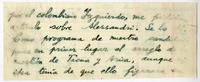 por el colombiano Izquierdo, me
todo sobre Alessandri. Se lo
como programa de nuestra
en primer lugar el arreglo
de Tacna y Arica, aunque
tenía de que ello figurara